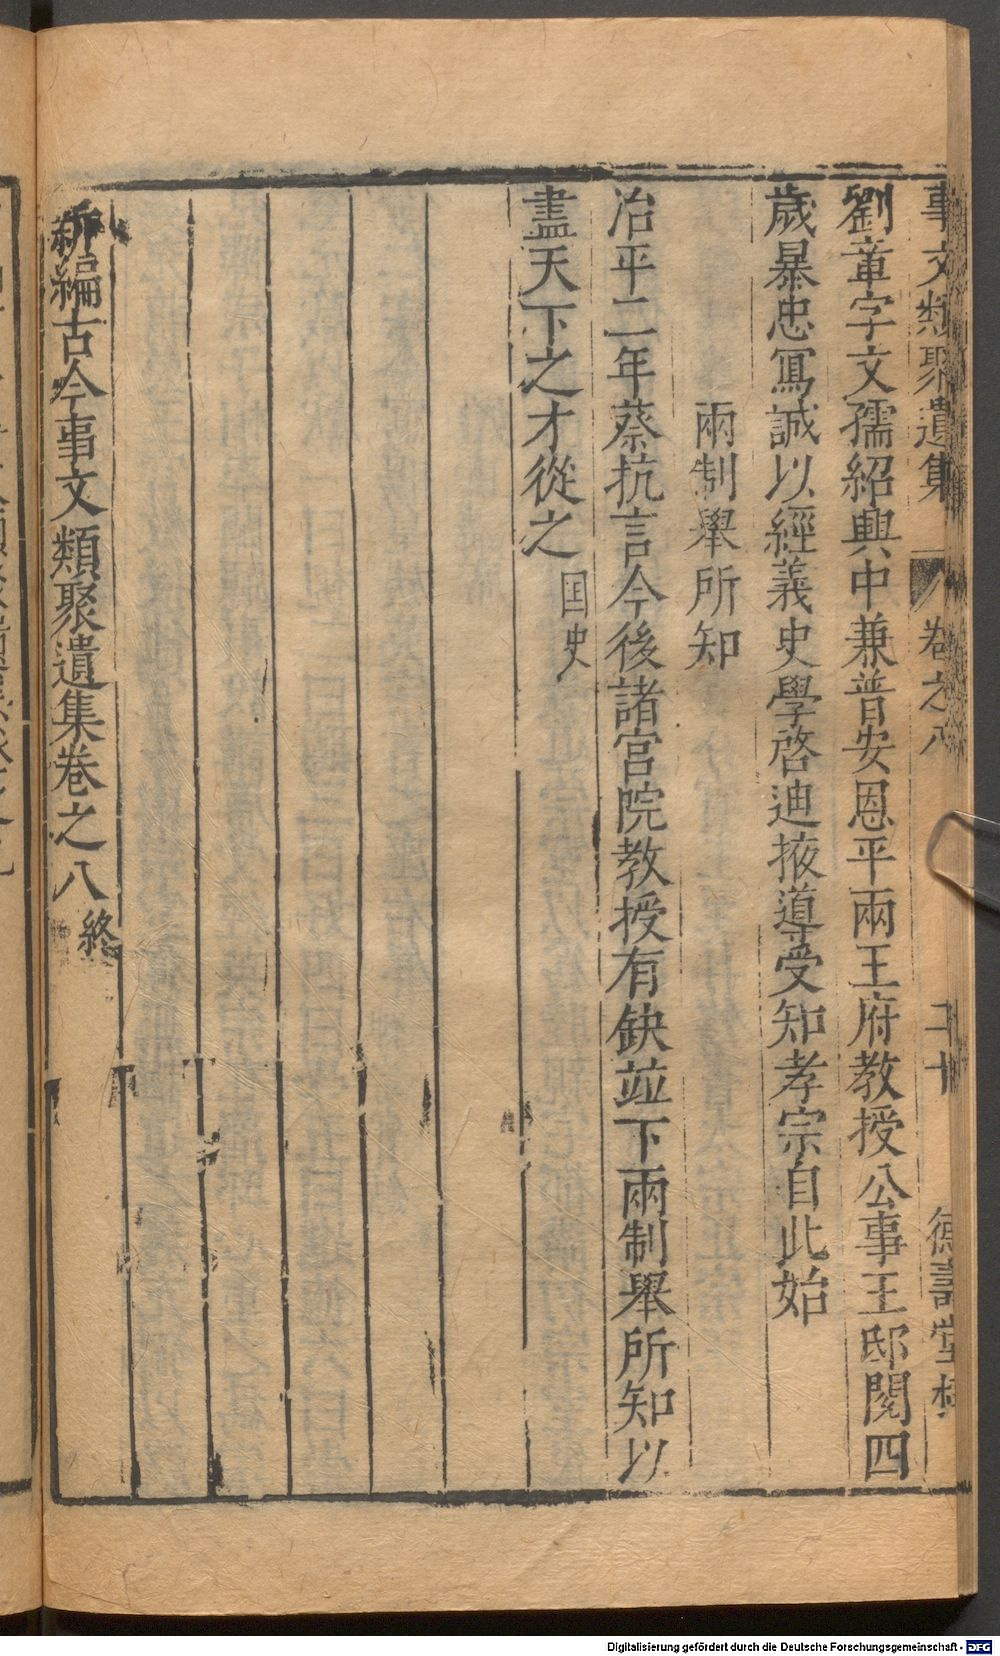 事文類聚遺集 卷之八 二十 德壽堂梓
劉章字文孺紹興中兼普安恩平兩王府教授公事王邸閱四
歲暴忠寫誠以經義史學啓迪掖導受知孝宗自此始
兩制舉所知
治平二年蔡抗言今後諸宮院教授有缺並下兩制舉所知以
盡天下之才從之 国史
新編古今事文類聚遺集卷之八 終
Digitalisierung gefördert durch die Deutsche Forschungsgemeinschaft - DFG